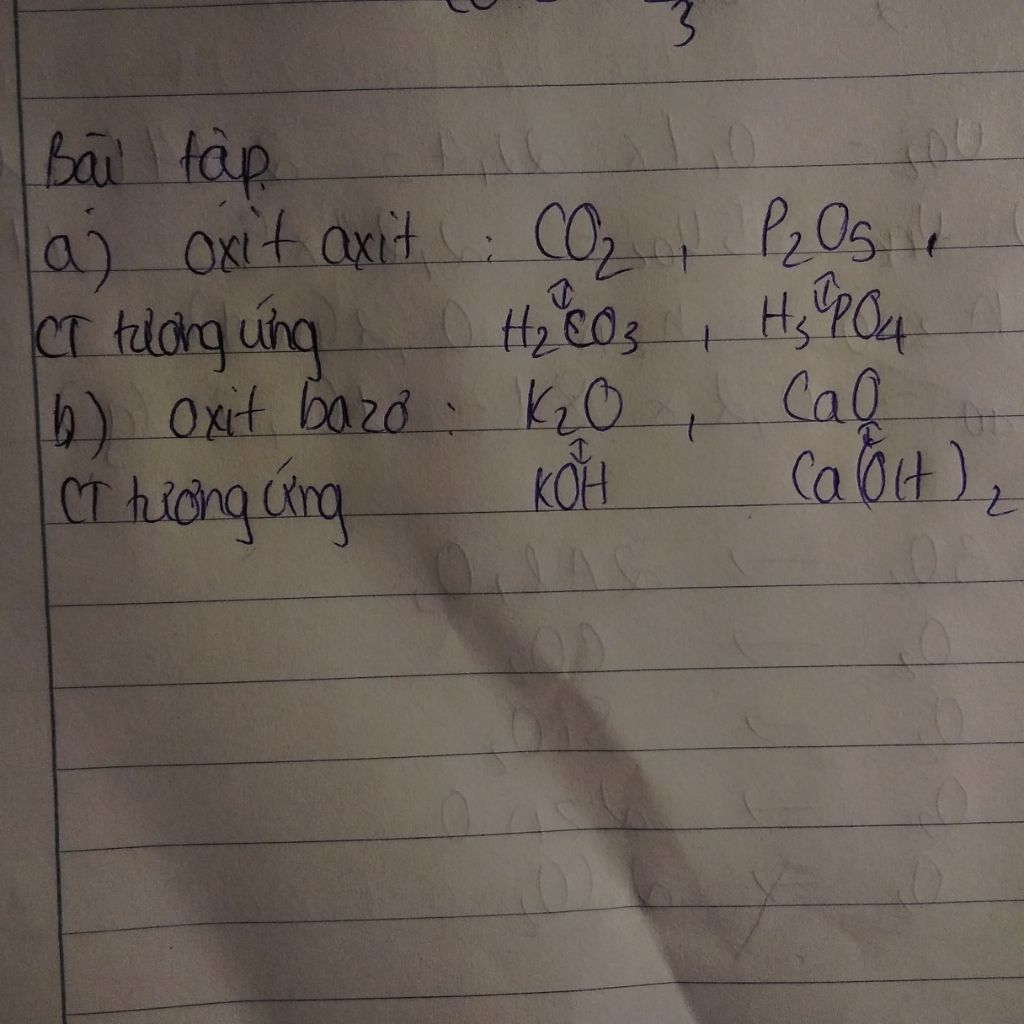 3
Bài tập
a) oxit axit : CO₂ , P₂O₅ ,
↕ ↕
CT tương ứng H₂CO₃ , H₃PO₄
b) oxit bazơ : K₂O , CaO
↕ ↕
CT tương ứng KOH Ca(OH)₂